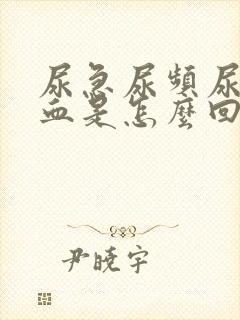 尿急尿頻尿
血是怎麼回
尹曉宇